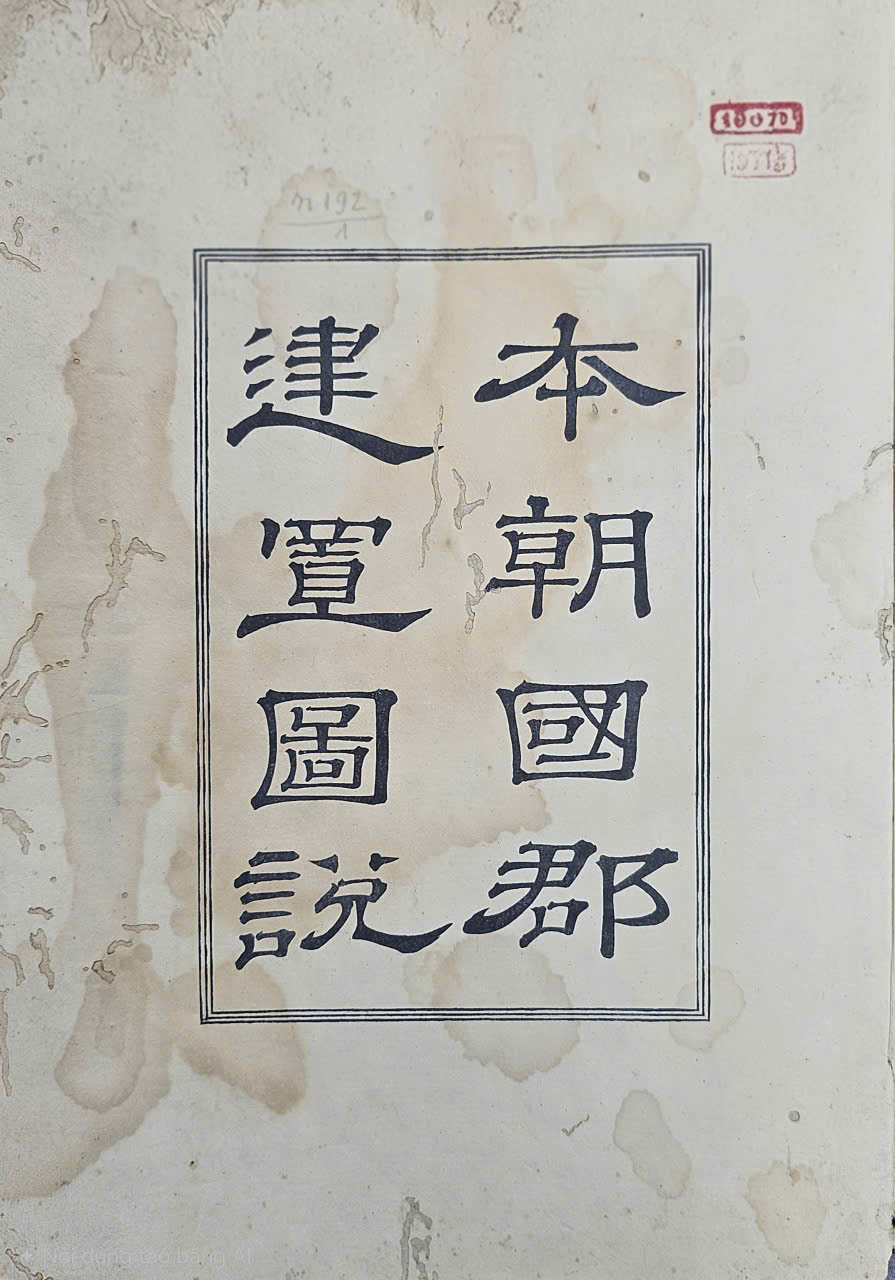 本朝國郡
建置圖說
10070
n 192
1
Nội dung tạo bằng AI